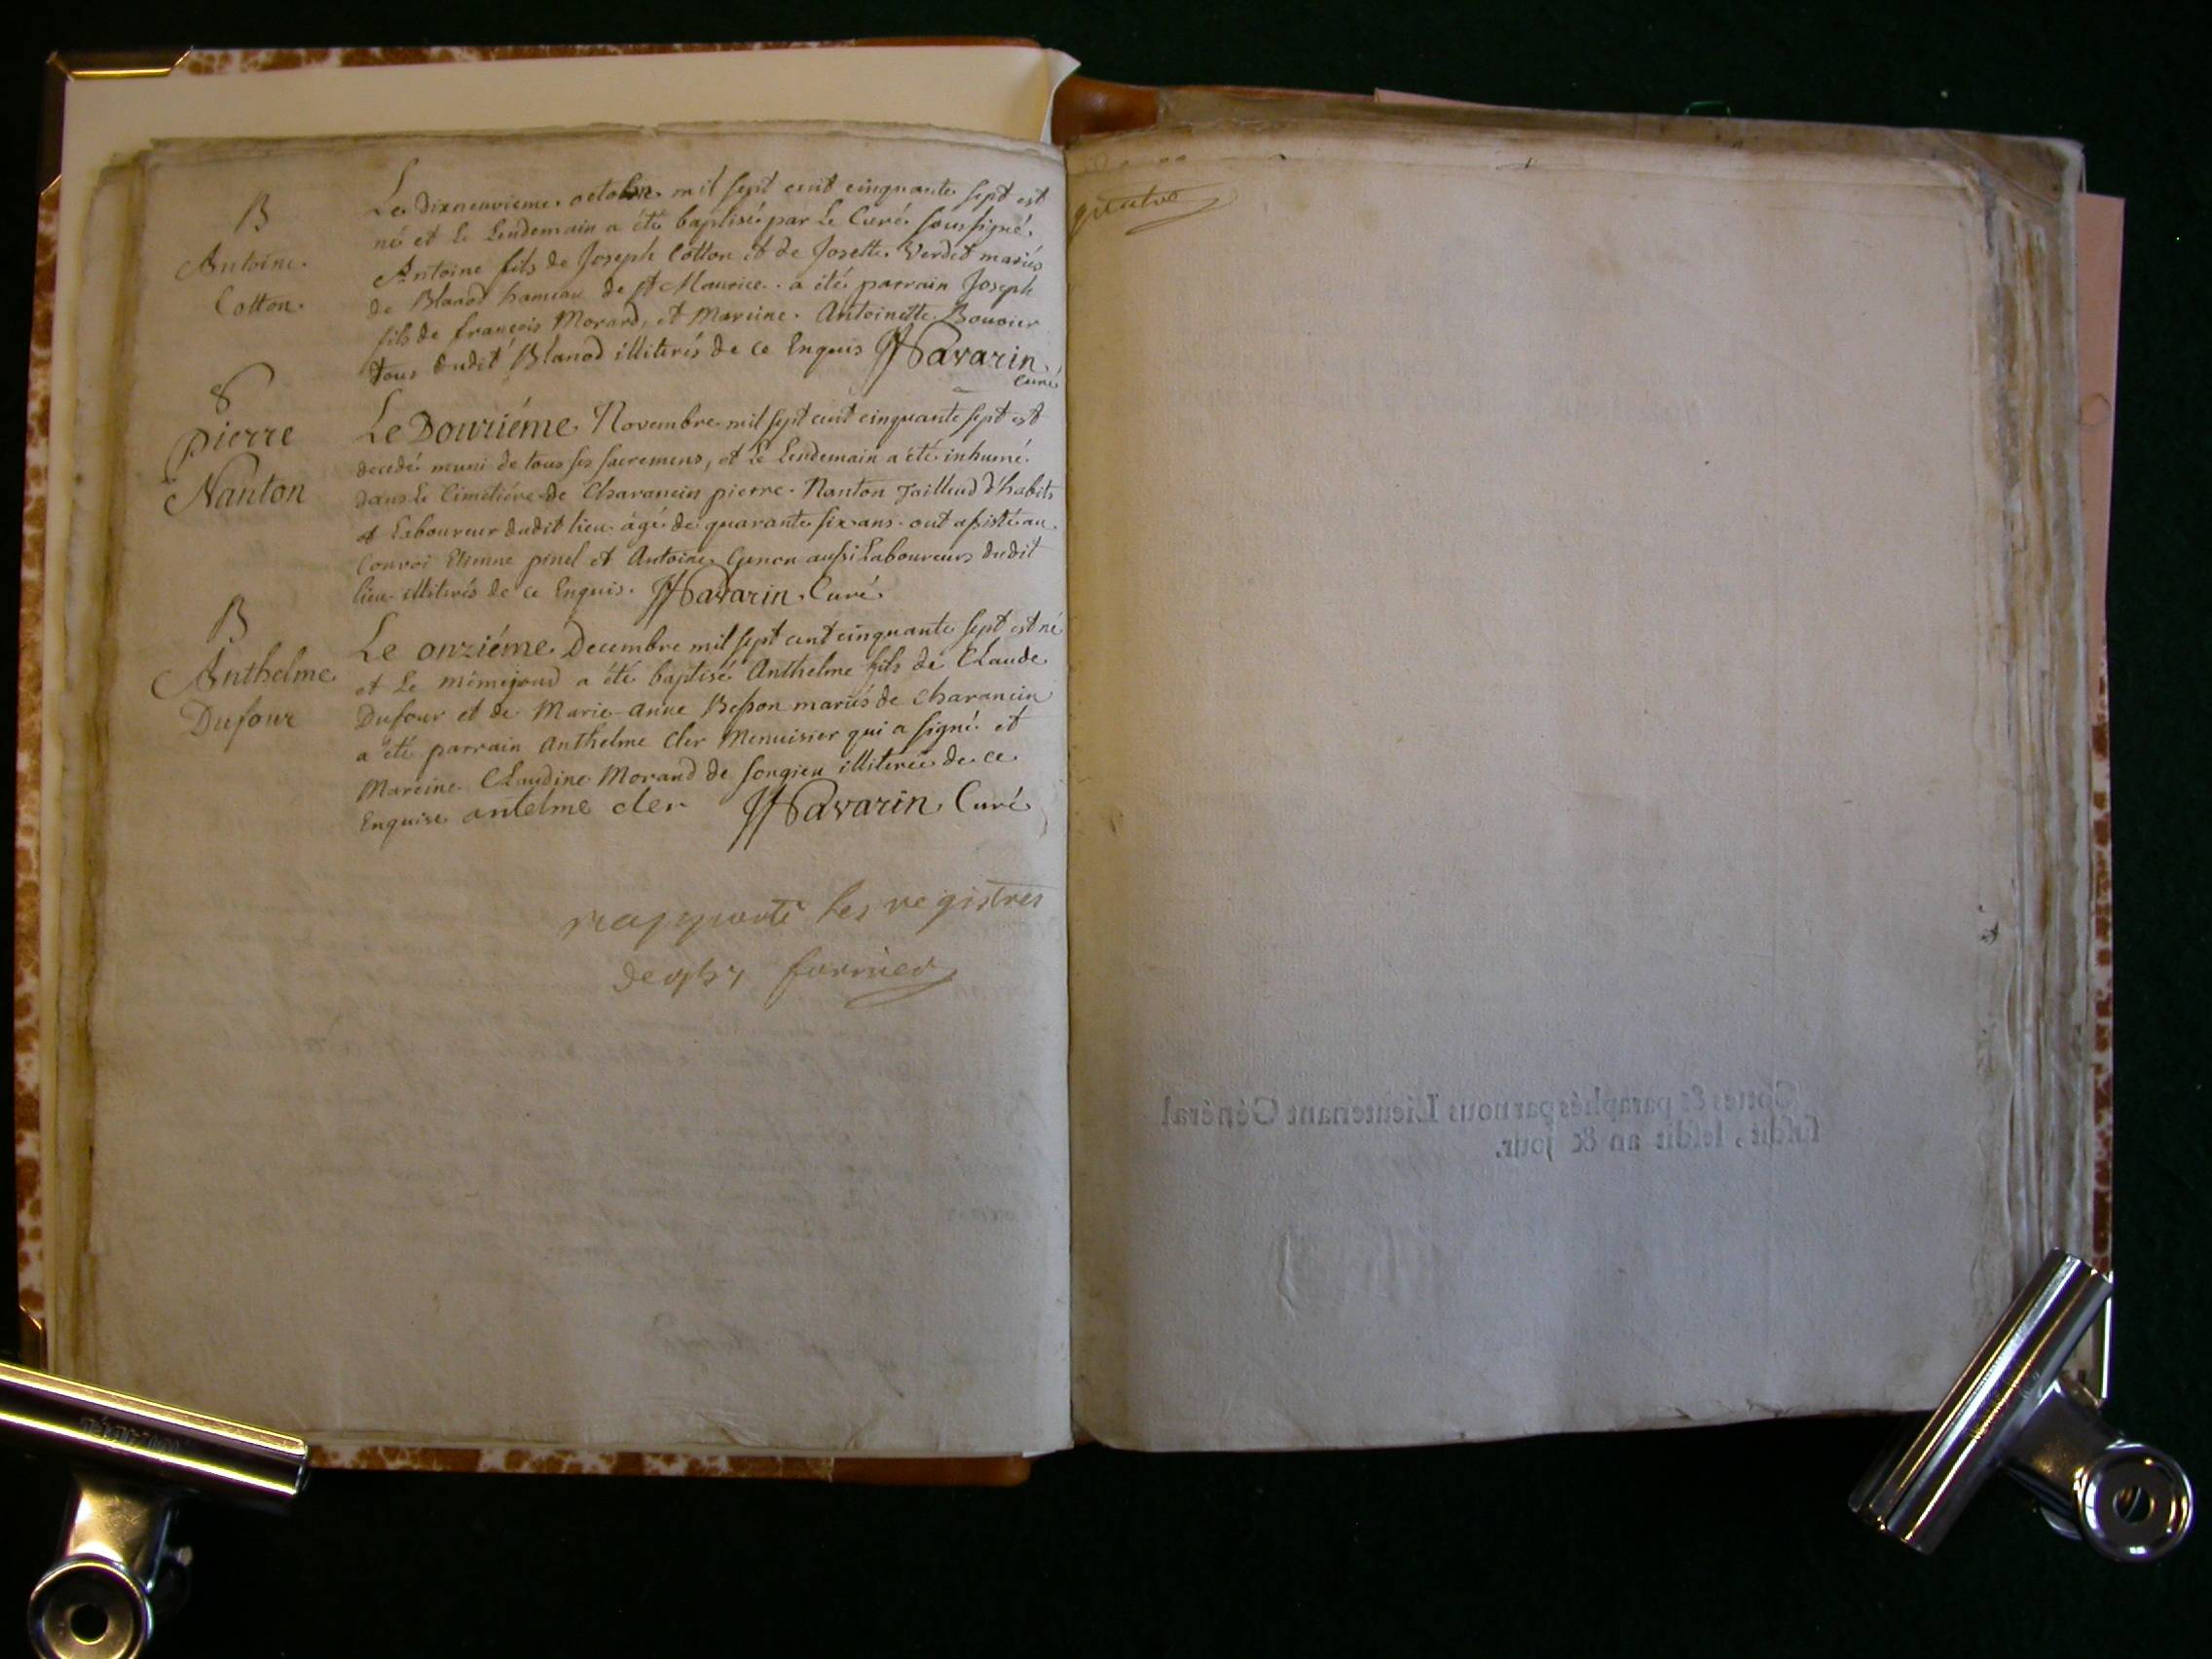 B
Antoine
Cotton.
Le dixneuvieme octobre mil sept cent cinquante sept est
né et le lendemain a été baptisé par le Curé soussigné
Antoine fils de Joseph Cotton et de Josette Verdet mariés
de Blanod hameau de st Maurice. a été parrain Joseph
fils de françois Morard, et Mareine Antoinette Bouvier
tous dudit Blanod illiterés de ce Enquis Savarin
curé
8
pierre
Nanton
Le Douziéme Novembre mil sept cent cinquante sept est
decedé muni de tous ses sacremens, et le lendemain a été inhumé
dans le Cimetiére de Charancin pierre Nanton Tailleud d'habits
et laboureur dudit lieu âgé de quarante six ans. ont assisté au
Convoi Etienne pinel et Antoine Genon aussi Laboureurs dudit
lieu illiterés de ce Enquis. Savarin Curé
B
Anthelme
Dufour
Le onziéme Decembre mil sept cent cinquante sept est né
et Le mêmejoud a été baptisé Anthelme fils de Claude
Dufour et de Marie-anne Besson mariés de Charancin
a été parrain Anthelme Cler Menuisier qui a signé et
Mareine Claudine Morand de songieu illiterée de ce
Enquise antelme cler Savarin Curé
rapporté les registres
quatre
Cottes & paraphés par nous Lieutenant Général
susdit, lesdit an & jour.